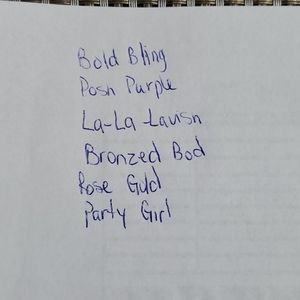 Bold Bling
Posh Purple
La-La-Lavish
Bronzed Bod
Rose Gold
Party Girl